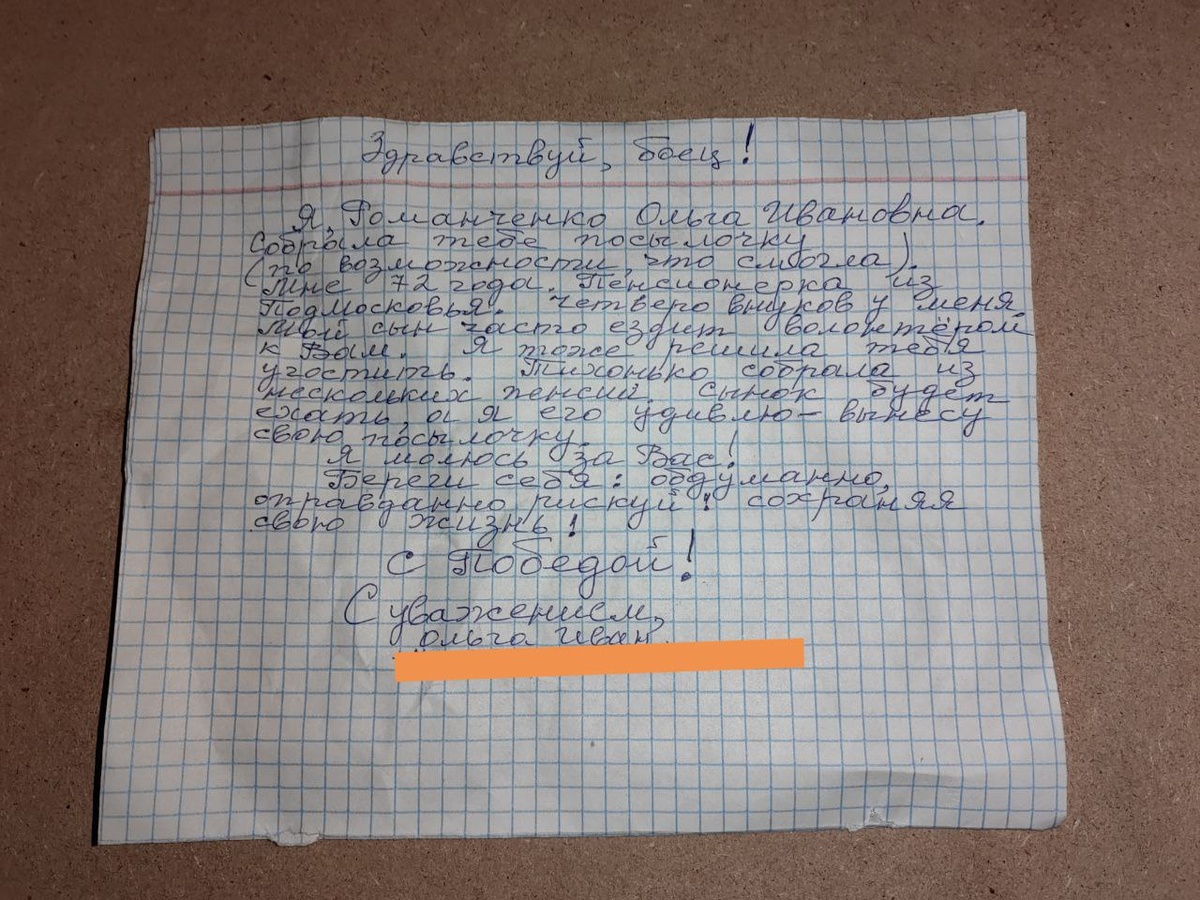 Здравствуй, боец!
Я, Романченко Ольга Ивановна.
Собрала тебе посылочку
(по возможности, что смогла).
Мне 72 года. Пенсионерка из
Подмосковья. Четверо внуков у меня.
Мой сын часто ездит волонтёром
к Вам. Я тоже решила тебя
угостить. Тихонько собрала из
нескольких пенсий. Сынок будет
ехать, а я его удивлю – вынесу
свою посылочку.
Я молюсь за Вас!
Береги себя: обдуманно,
оправданно рискуй! сохраняя
свою жизнь!
С Победой!
С уважением,
Ольга Иван.